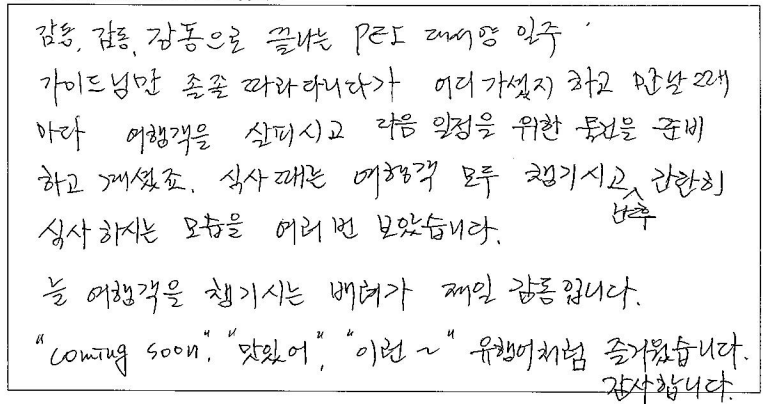 감동, 감동, 감동으로 끝나는 PEI 대서양 일주
가이드님만 졸졸 따라다니다가 어디 가셨지 하고 만날 때
마다 여행객을 살피시고 다음 일정을 위한 물건을 준비
하고 계셨죠. 식사 때는 여행객 모두 챙기시고 난 후 간단히
식사하시는 모습을 여러 번 보았습니다.
늘 여행객을 챙기시는 배려가 제일 감동입니다.
"coming soon", "맛있어", "이런~" 유행어처럼 즐거웠습니다.
감사합니다.